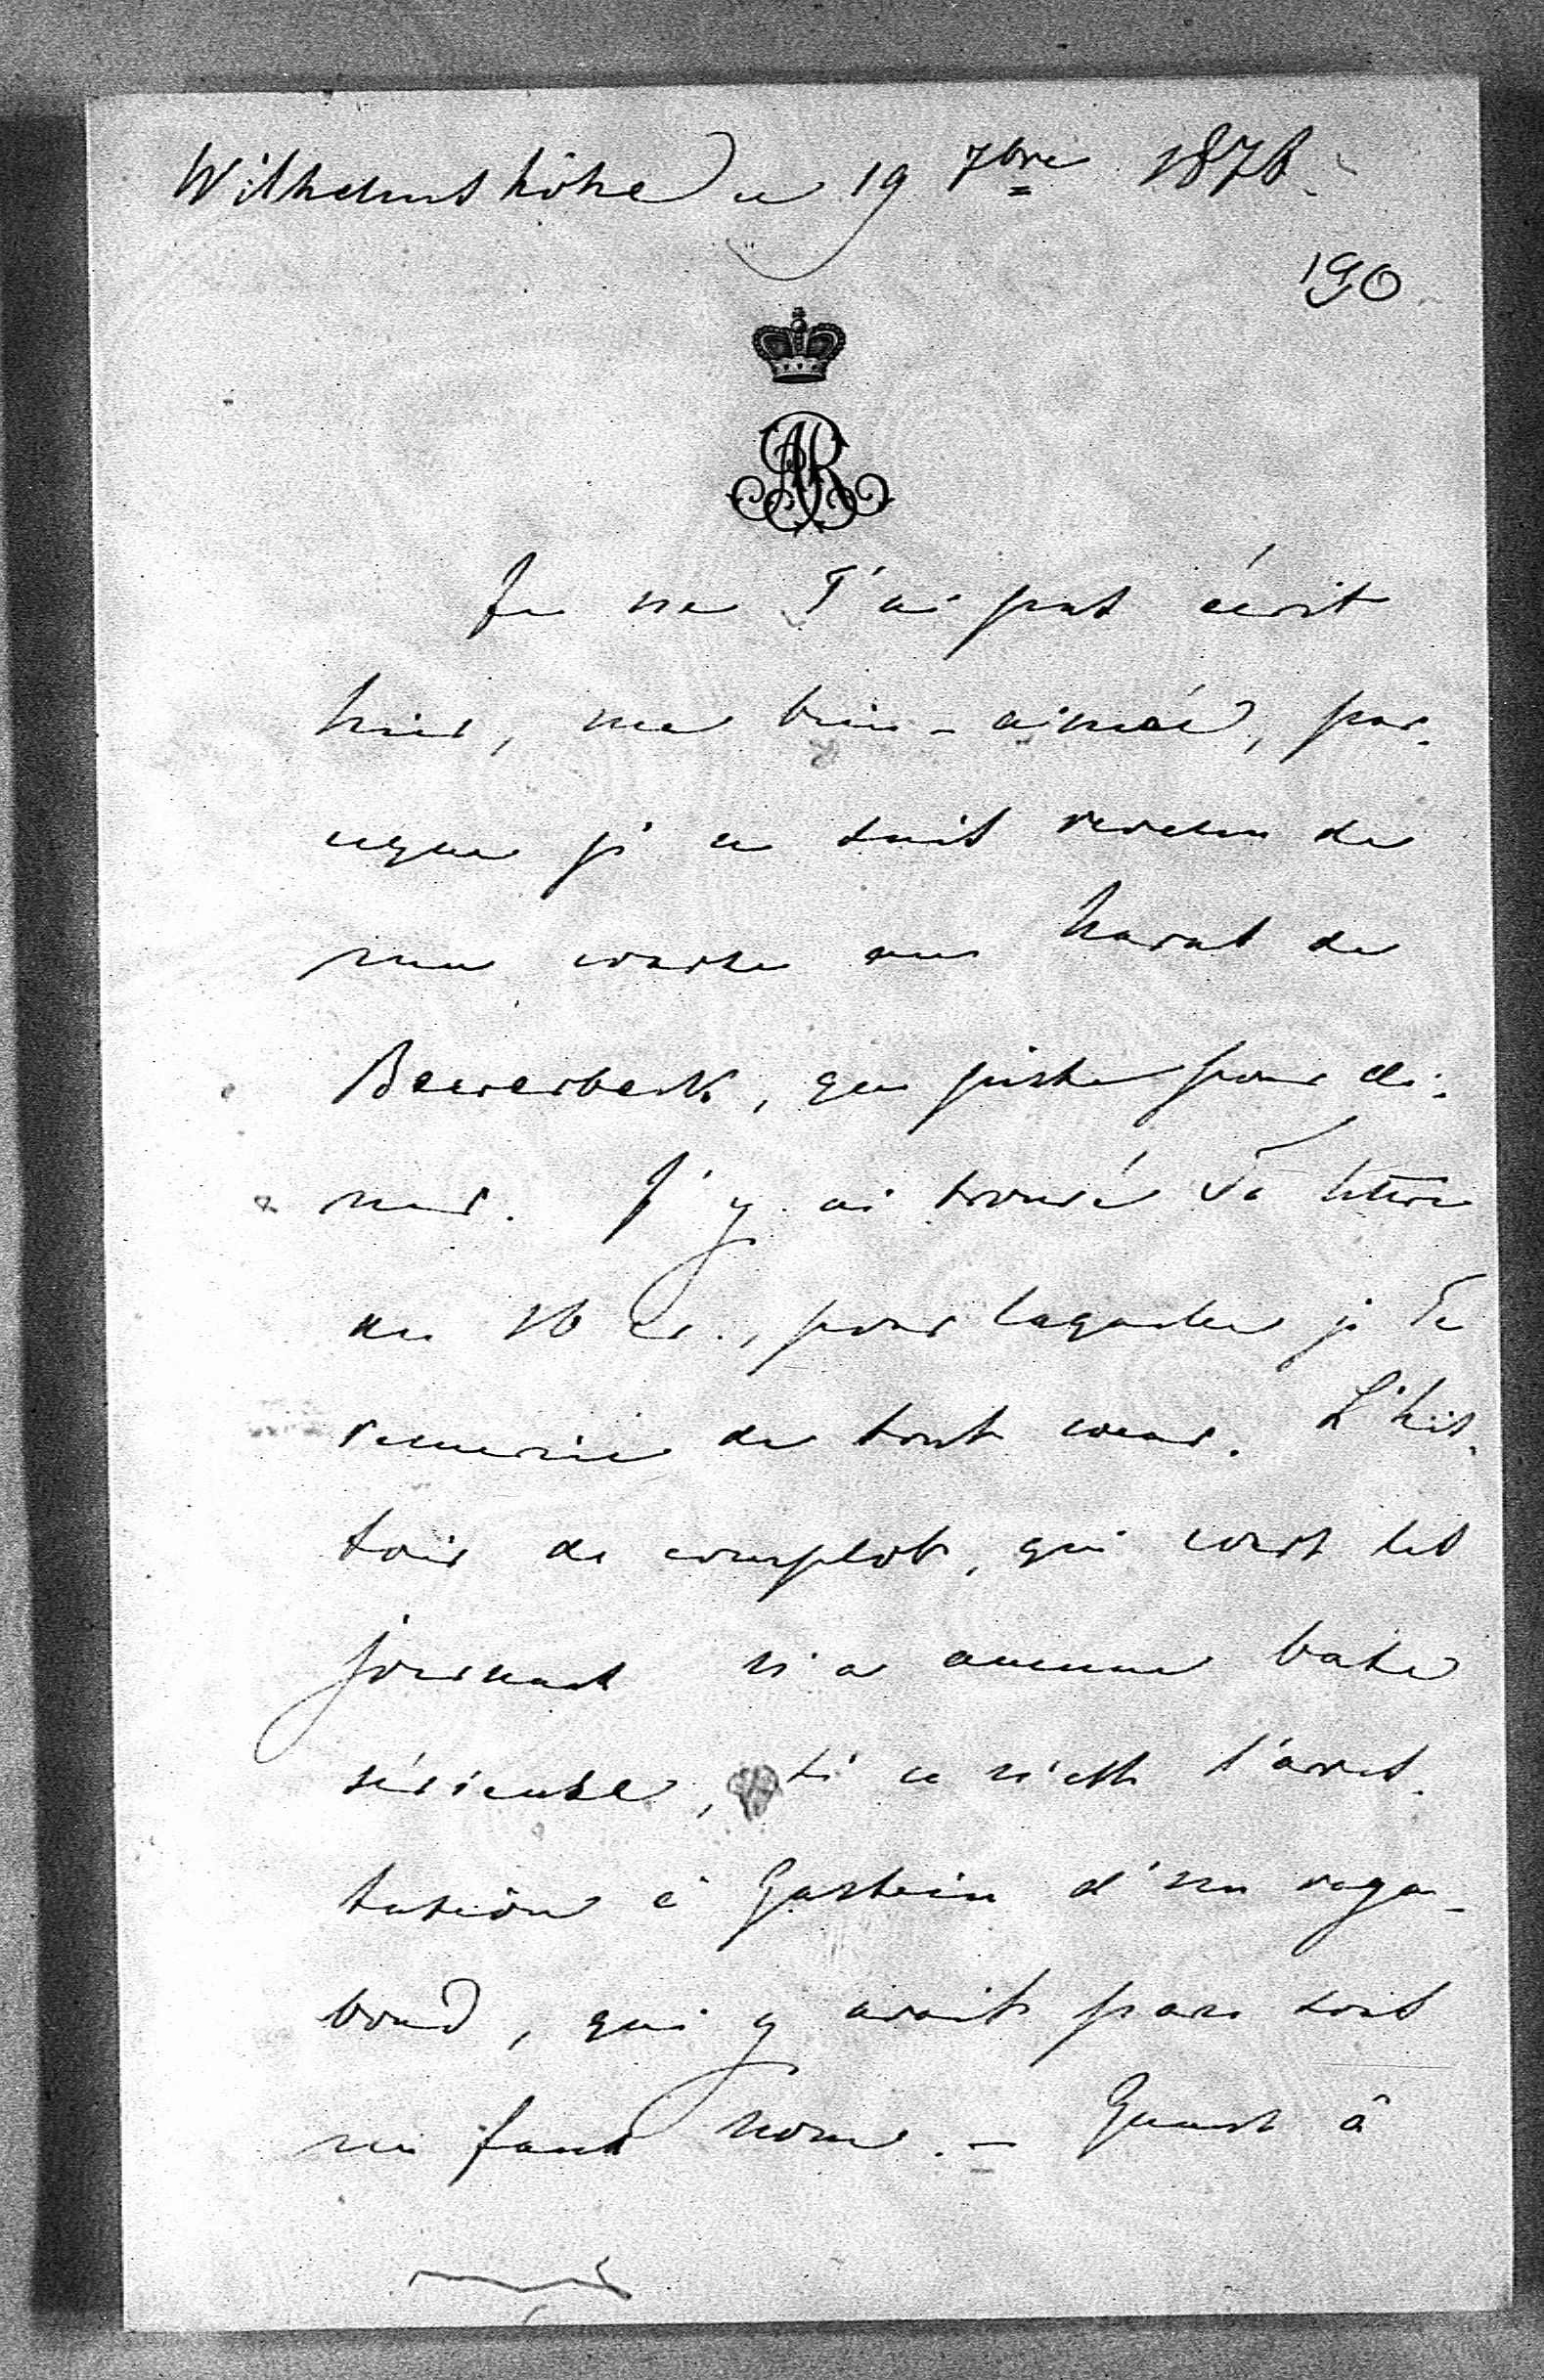 Wilhelmshöhe ce 19 7bre 1878.
190
AR
Je ne T'ai pas écrit
hier, ma bien-aimée, par-
ceque je ne suis revenu de
ma course au haras de
Beberbeck, que juste pour di-
ner. J'y ai trouvé Ta lettre
du 16 cr., pour laquelle je Te
remercie de tout coeur. L'his-
toire de complot, qui court les
journaux n'a aucune base
sérieuse, si ce n'est l'arres-
tation à Gastein d'un vaga-
bond, qui y avait paru sous
un faux nom. - Quant à